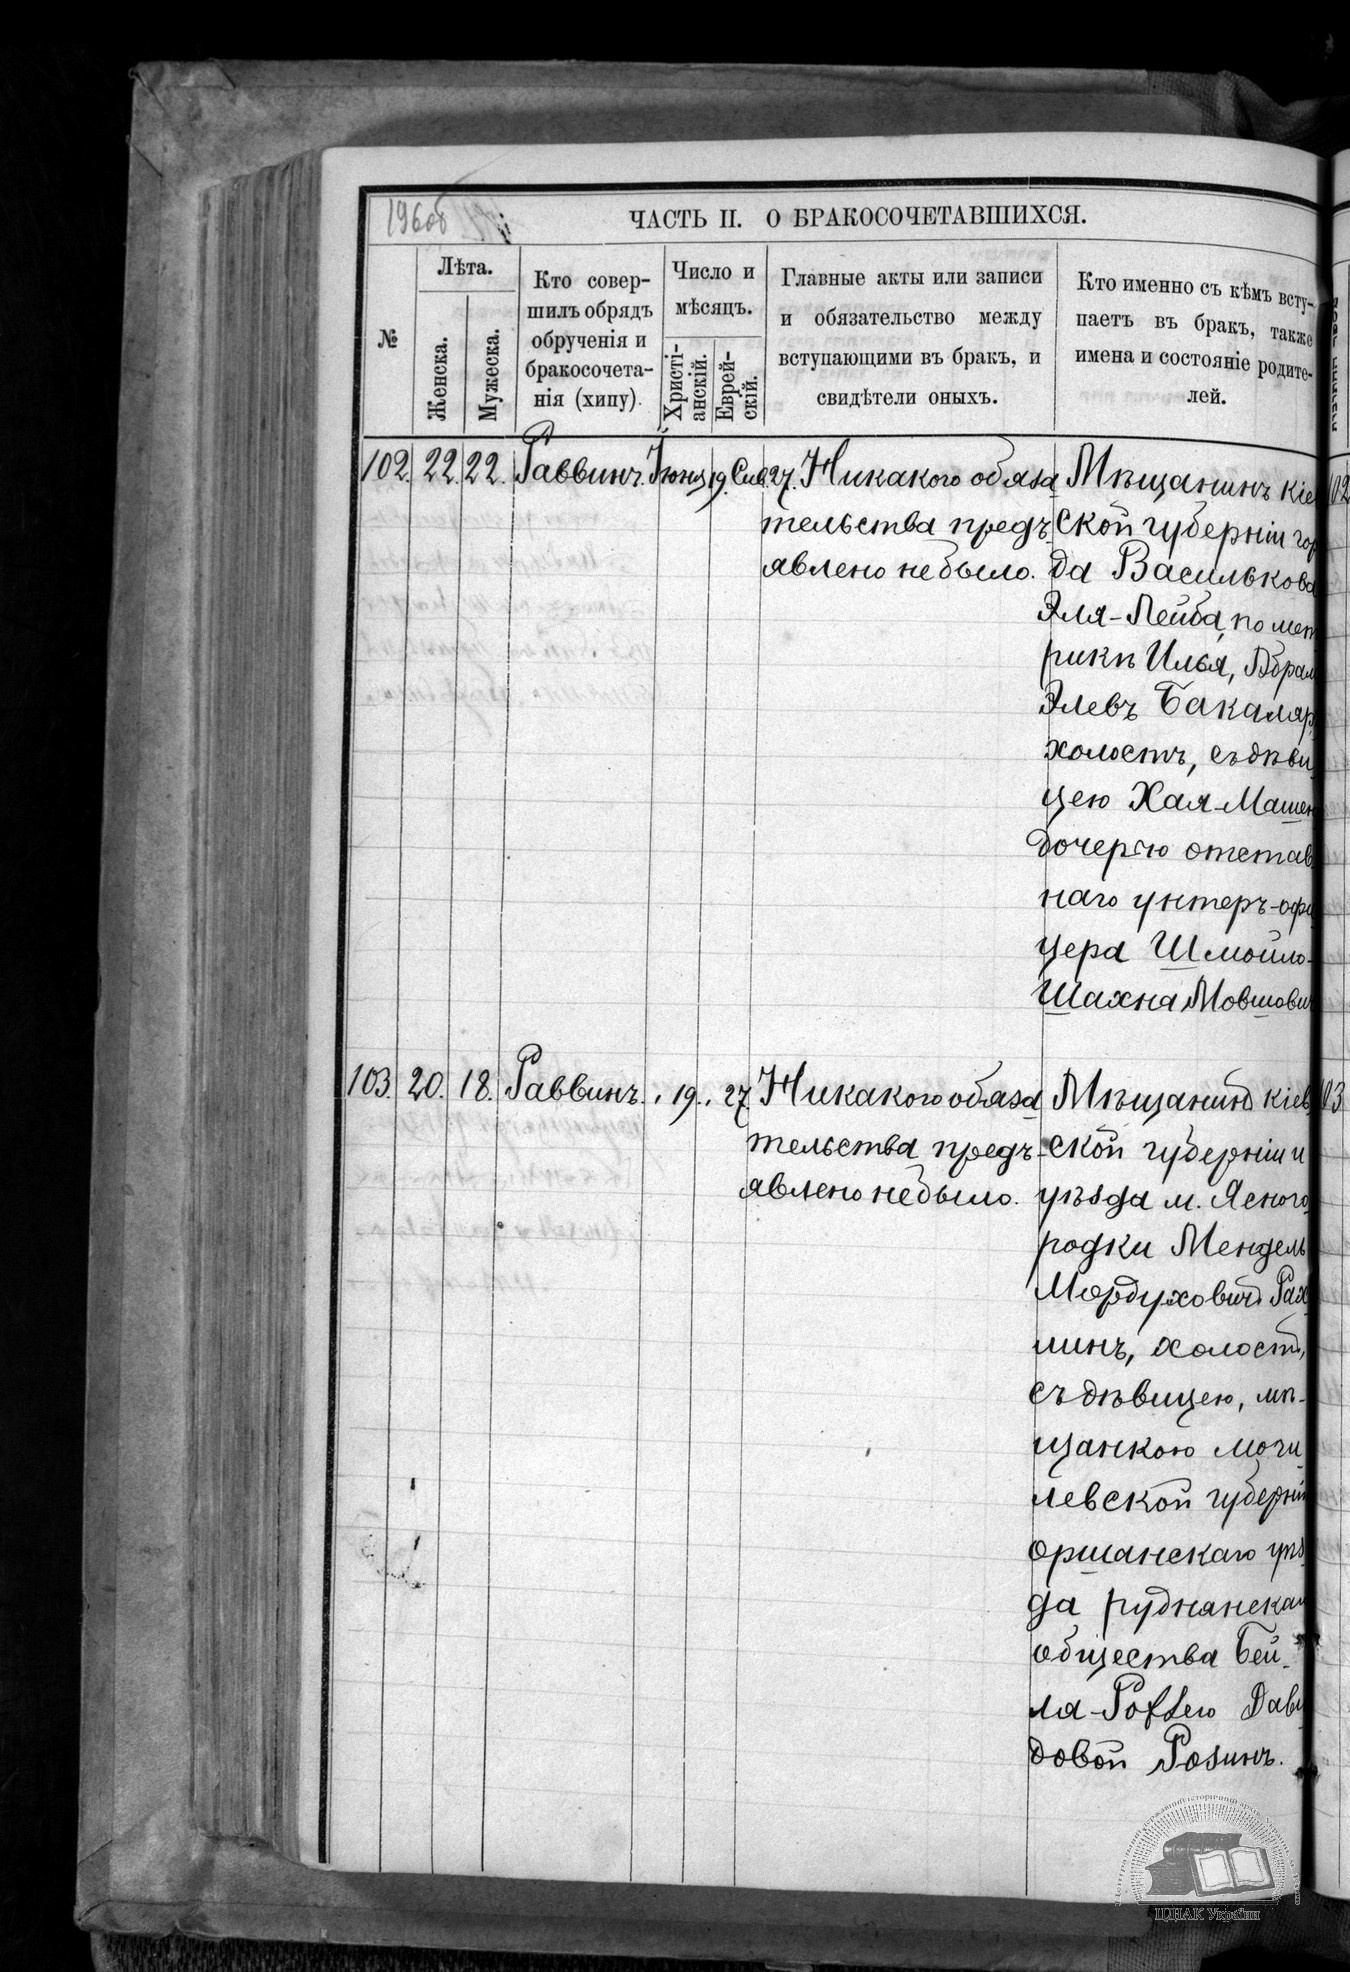 196об
ЧАСТЬ II. О БРАКОСОЧЕТАВШИХСЯ.
№
Лѣта.
Женска.
Мужеска.
Кто совер-
шилъ обрядъ
обрученія и
бракосочета-
нія (хипу).
Число и
мѣсяцъ.
Христі-
анскій.
Еврей-
скій.
Главные акты или записи
и обязательство между
вступающими въ бракъ, и
свидѣтели оныхъ.
Кто именно съ кѣмъ всту-
паетъ въ бракъ, также
имена и состояніе родите-
лей.
102. 22. 22. Раввинъ. Іюня 19. Сив. 27.
Никакого обяза
тельства предъ-
явлено не было.
Мѣщанинъ кіев
ской губерніи гор
да Василькова
Эля-Лейба, по мет
рикѣ Илья, Абрам
Элевъ Бакаляр,
холостъ, съ дѣви
цею Хая-Машею
дочерью отстав
наго унтеръ-офи
цера Шмойло-
Шахна Мовшович
103. 20. 18. Раввинъ. 19. 27.
Никакого обяза
тельства предъ-
явлено не было.
Мѣщанинъ кіев
ской губерніи и
уѣзда м. Ясного
родки Мендель
Мордуховичъ Рах
линъ, холостъ,
съ дѣвицею, мѣ-
щанкою моги
левской губерніи
оршанскаго уѣз
да руднянскаго
общества Бей-
ла-Рохлею Дави
довой Розинъ.
102
103
ЦДІАК України